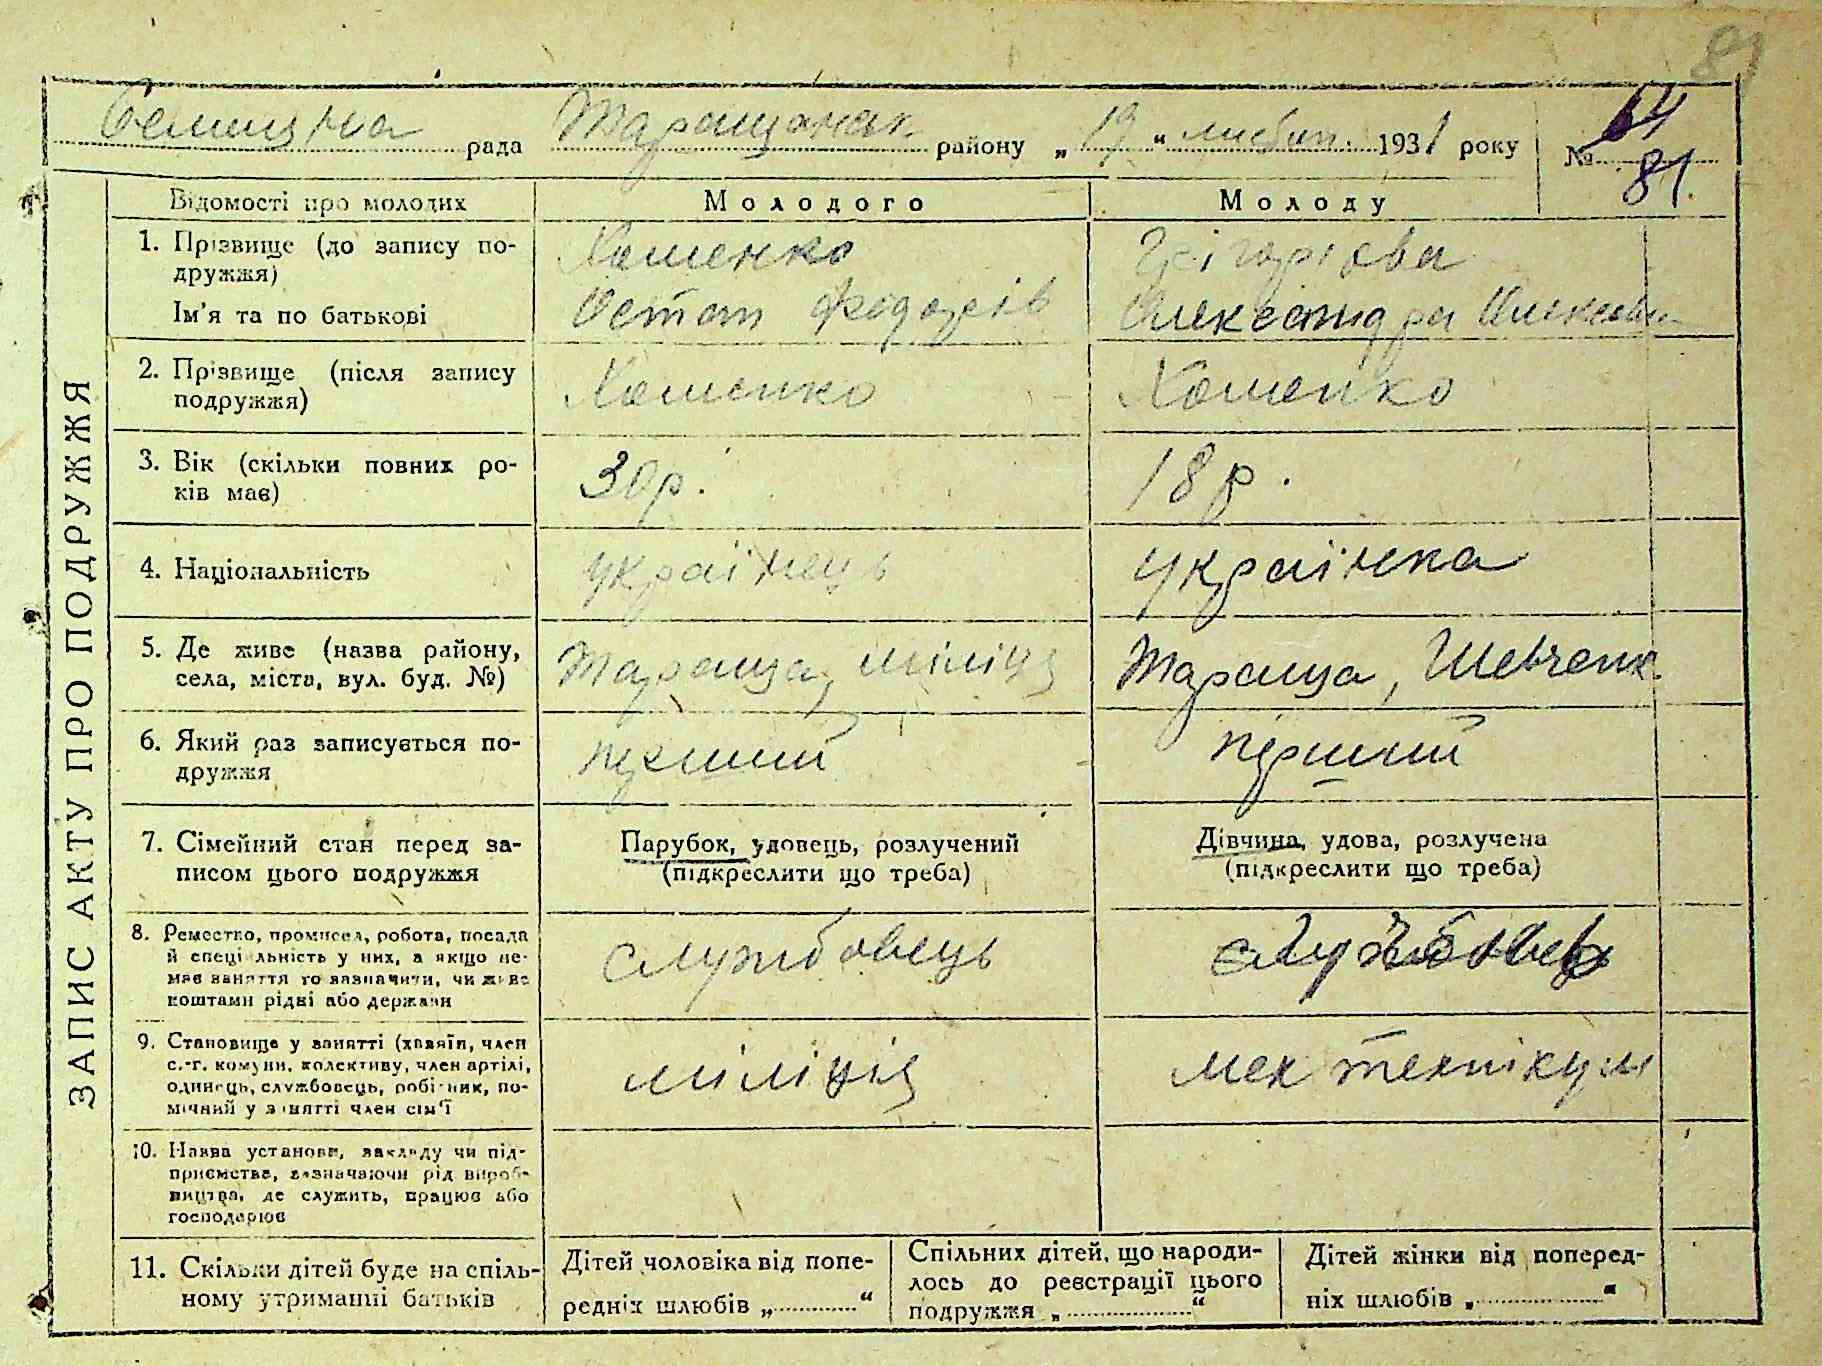 81
Селищна рада Таращанськ. району „19" липня. 1931 року № 64
81.
ЗАПИС АКТУ ПРО ПОДРУЖЖЯ
Відомості про молодих Молодого Молоду
1. Прізвище (до запису по-
дружжя)
Хоменко Григорієва
Ім'я та по батькові Остап Федорів Олександра Олексієвн
2. Прізвище (після запису
подружжя)
Хоменко Хоменко
3. Вік (скільки повних ро-
ків має)
30 р. 18 р.
4. Національність українець українка
5. Де живе (назва району,
села, міста, вул. буд. №)
Тараща, міліція Тараща, Шевченк.
6. Який раз записується по-
дружжя
перший перший
7. Сімейний стан перед за-
писом цього подружжя
Парубок, удовець, розлучений
(підкреслити що треба)
Дівчина, удова, розлучена
(підкреслити що треба)
8. Ремество, промисел, робота, посада
й спеціальність у них, а якщо не-
має заняття то зазначити, чи живе
коштами рідні або держави
службовець службовець
9. Становище у занятті (хазяїн, член
с.-г. комуни, колективу, член артілі,
одинець, службовець, робітник, по-
мічний у занятті член сім'ї
міліція мех технікум
10. Назва установи, закладу чи під-
приємства, зазначаючи рід вироб-
ництва, де служить, працює або
господарює
11. Скільки дітей буде на спіль-
ному утриманні батьків
Дітей чоловіка від попе-
редніх шлюбів „ "
Спільних дітей, що народи-
лось до реєстрації цього
подружжя „ "
Дітей жінки від поперед-
ніх шлюбів „ "